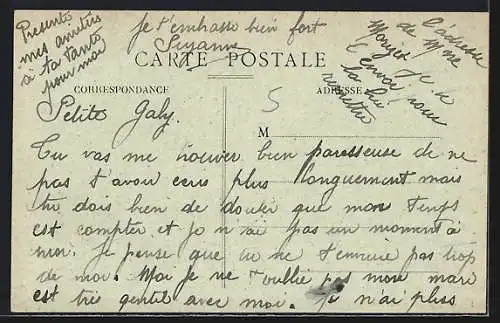 Presente
mes amitiés
à ta tante
pour moi
Je t'embrasse bien fort
Suzanne
l'adresse
de Mme
je
envoi pour
la lui
remettre
CARTE POSTALE
CORRESPONDANCE
ADRESSE
5
M
Petite Gaby.
Tu vas me trouver bien paresseuse de ne
pas t'avoir ecris plus longuement mais
tu dois bien de douter que mon temps
est compter et je n'ai pas un moment à
moi. Je pense que tu ne t'ennuie pas trop
de moi. Moi je ne t'oublie pas mon mari
est très gentil avec moi. Je n'ai pluss